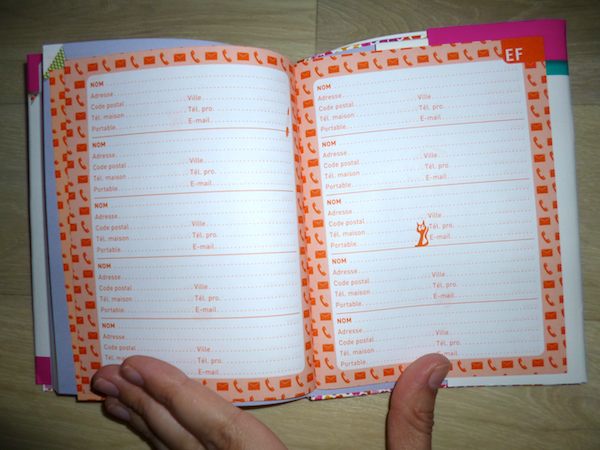 NOM
Adresse
Code postal Ville
Tél. maison Tél. pro.
Portable E-mail
NOM
Adresse
Code postal Ville
Tél. maison Tél. pro.
Portable E-mail
NOM
Adresse
Code postal Ville
Tél. maison Tél. pro.
Portable E-mail
NOM
Adresse
Code postal Ville
Tél. maison Tél. pro.
Portable E-mail
NOM
Adresse
Code postal Ville
Tél. pro.
E-mail
EF
NOM
Adresse
Code postal Ville
Tél. maison Tél. pro.
Portable E-mail
NOM
Adresse
Code postal Ville
Tél. maison Tél. pro.
Portable E-mail
NOM
Adresse
Code postal Ville
Tél. maison Tél. pro.
Portable E-mail
NOM
Adresse
Code postal Ville
Tél. maison Tél. pro.
Portable E-mail
NOM
Adresse
Code postal Ville
Tél. maison Tél. pro.
Portable